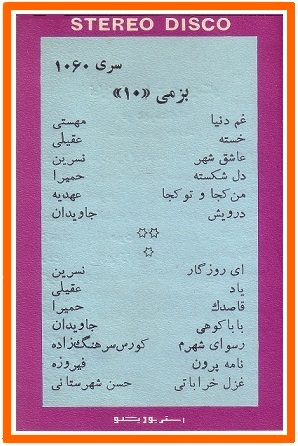 STEREO DISCO
سری ۱۰۶۰
بزمی «۱۰»
غم دنیا مهستی
خسته عقیلی
عاشق شهر نسرین
دل شکسته حمیرا
من کجا و تو کجا عهدیه
درویش جاویدان
ای روزگار نسرین
یاد عقیلی
قاصدك حمیرا
باباکوهی جاویدان
رسوای شهرم کورس سرهنگ‌زاده
نامه پرون فیروزه
غزل خراباتی حسن شهرستانی